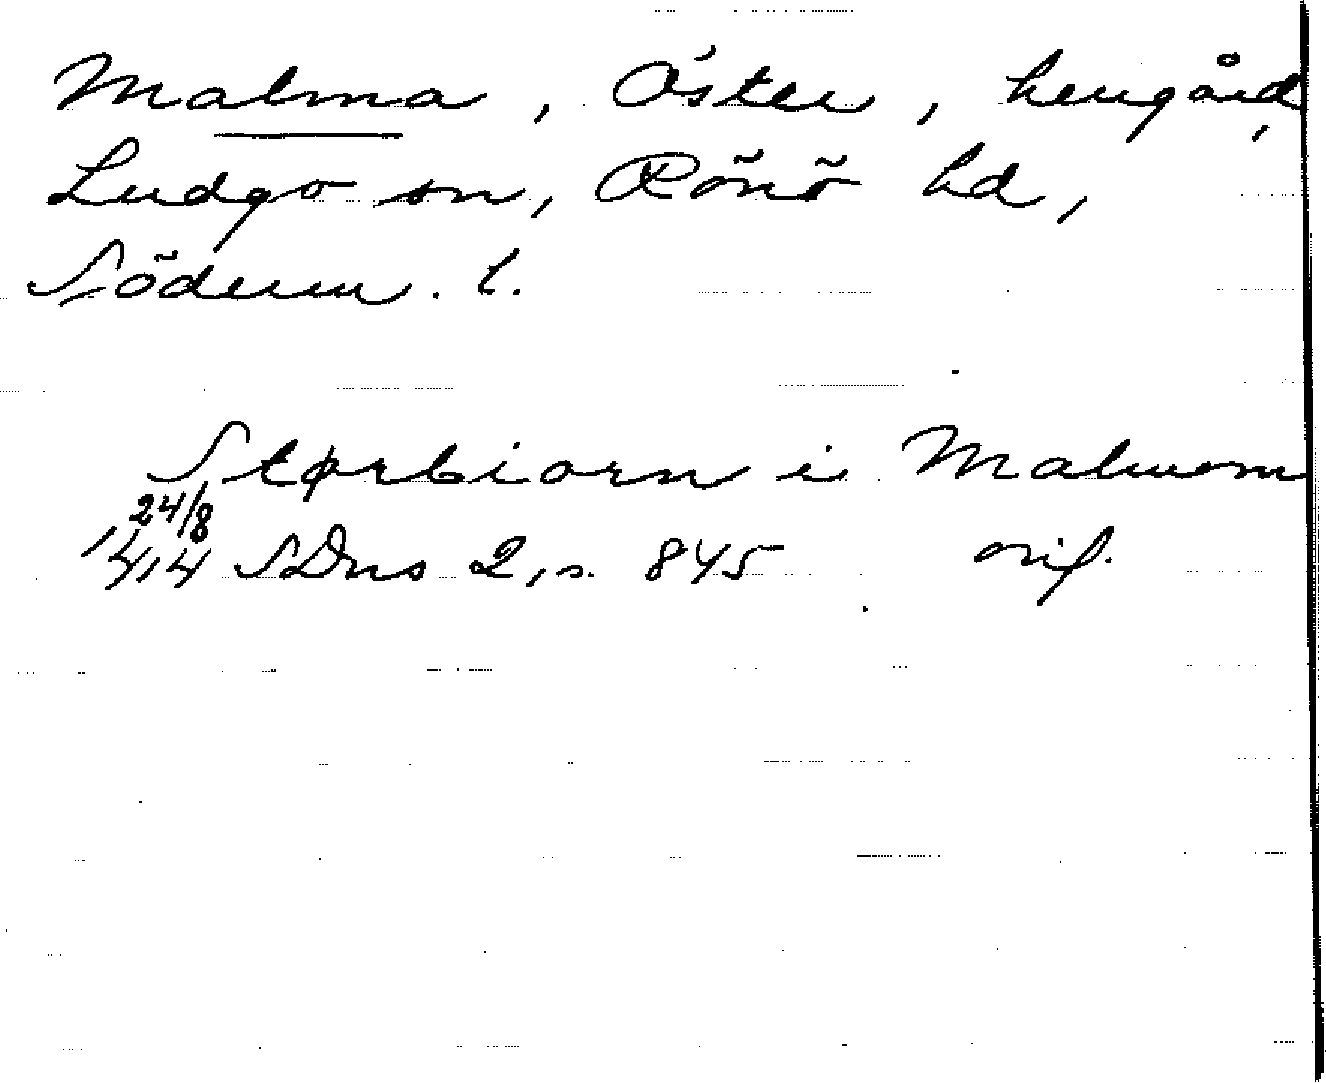 Malma, Öster, herrgård,
Ludgo sn, Rönö hd,
Söderm. l.
Størbiorn i Malmom
24/8
1414 SDns 2, s. 845 orig.